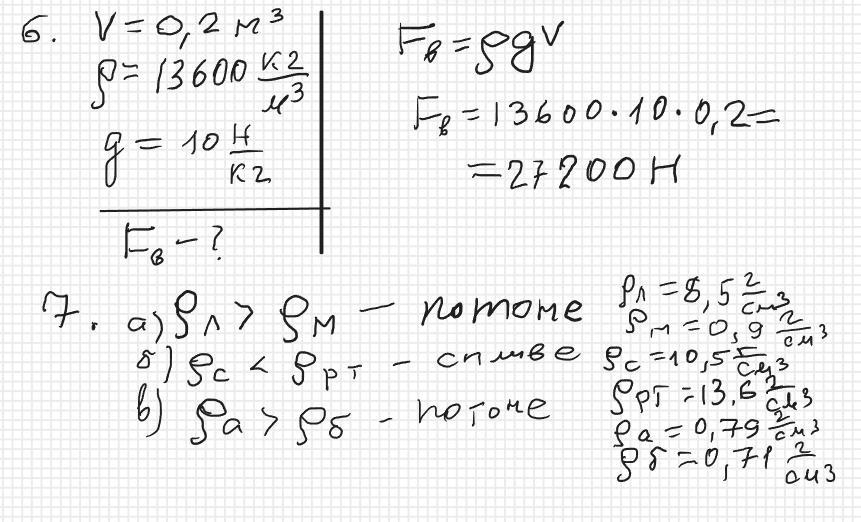 6. V = 0,2 м³
ρ = 13600 кг/м³
g = 10 Н/кг
Fв - ?
Fв = ρgV
Fв = 13600 · 10 · 0,2 =
= 27200 Н
7. а) ρл > ρм — потоне
б) ρс < ρрт - спливе
в) ρа > ρб - потоне
ρл = 8,5 г/см³
ρм = 0,9 г/см³
ρс = 10,5 г/см³
ρрт = 13,6 г/см³
ρа = 0,79 г/см³
ρб = 0,71 г/см³